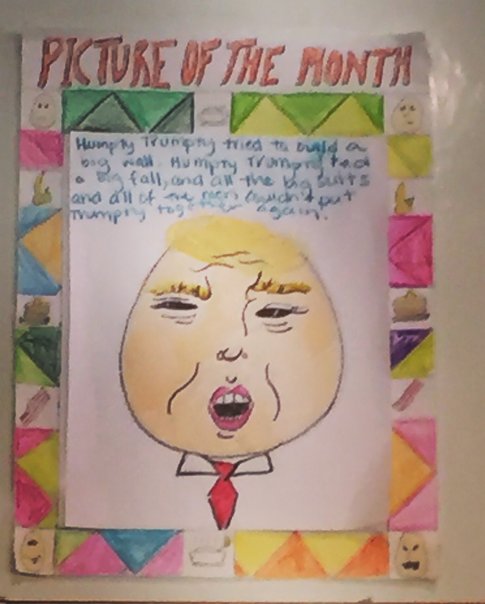 PICTURE OF THE MONTH
Humpty Trumpty tried to build a
big wall. Humpty Trumpty had
a big fall, and all the big butts
and all of the couldn't put
Trumpty together again!